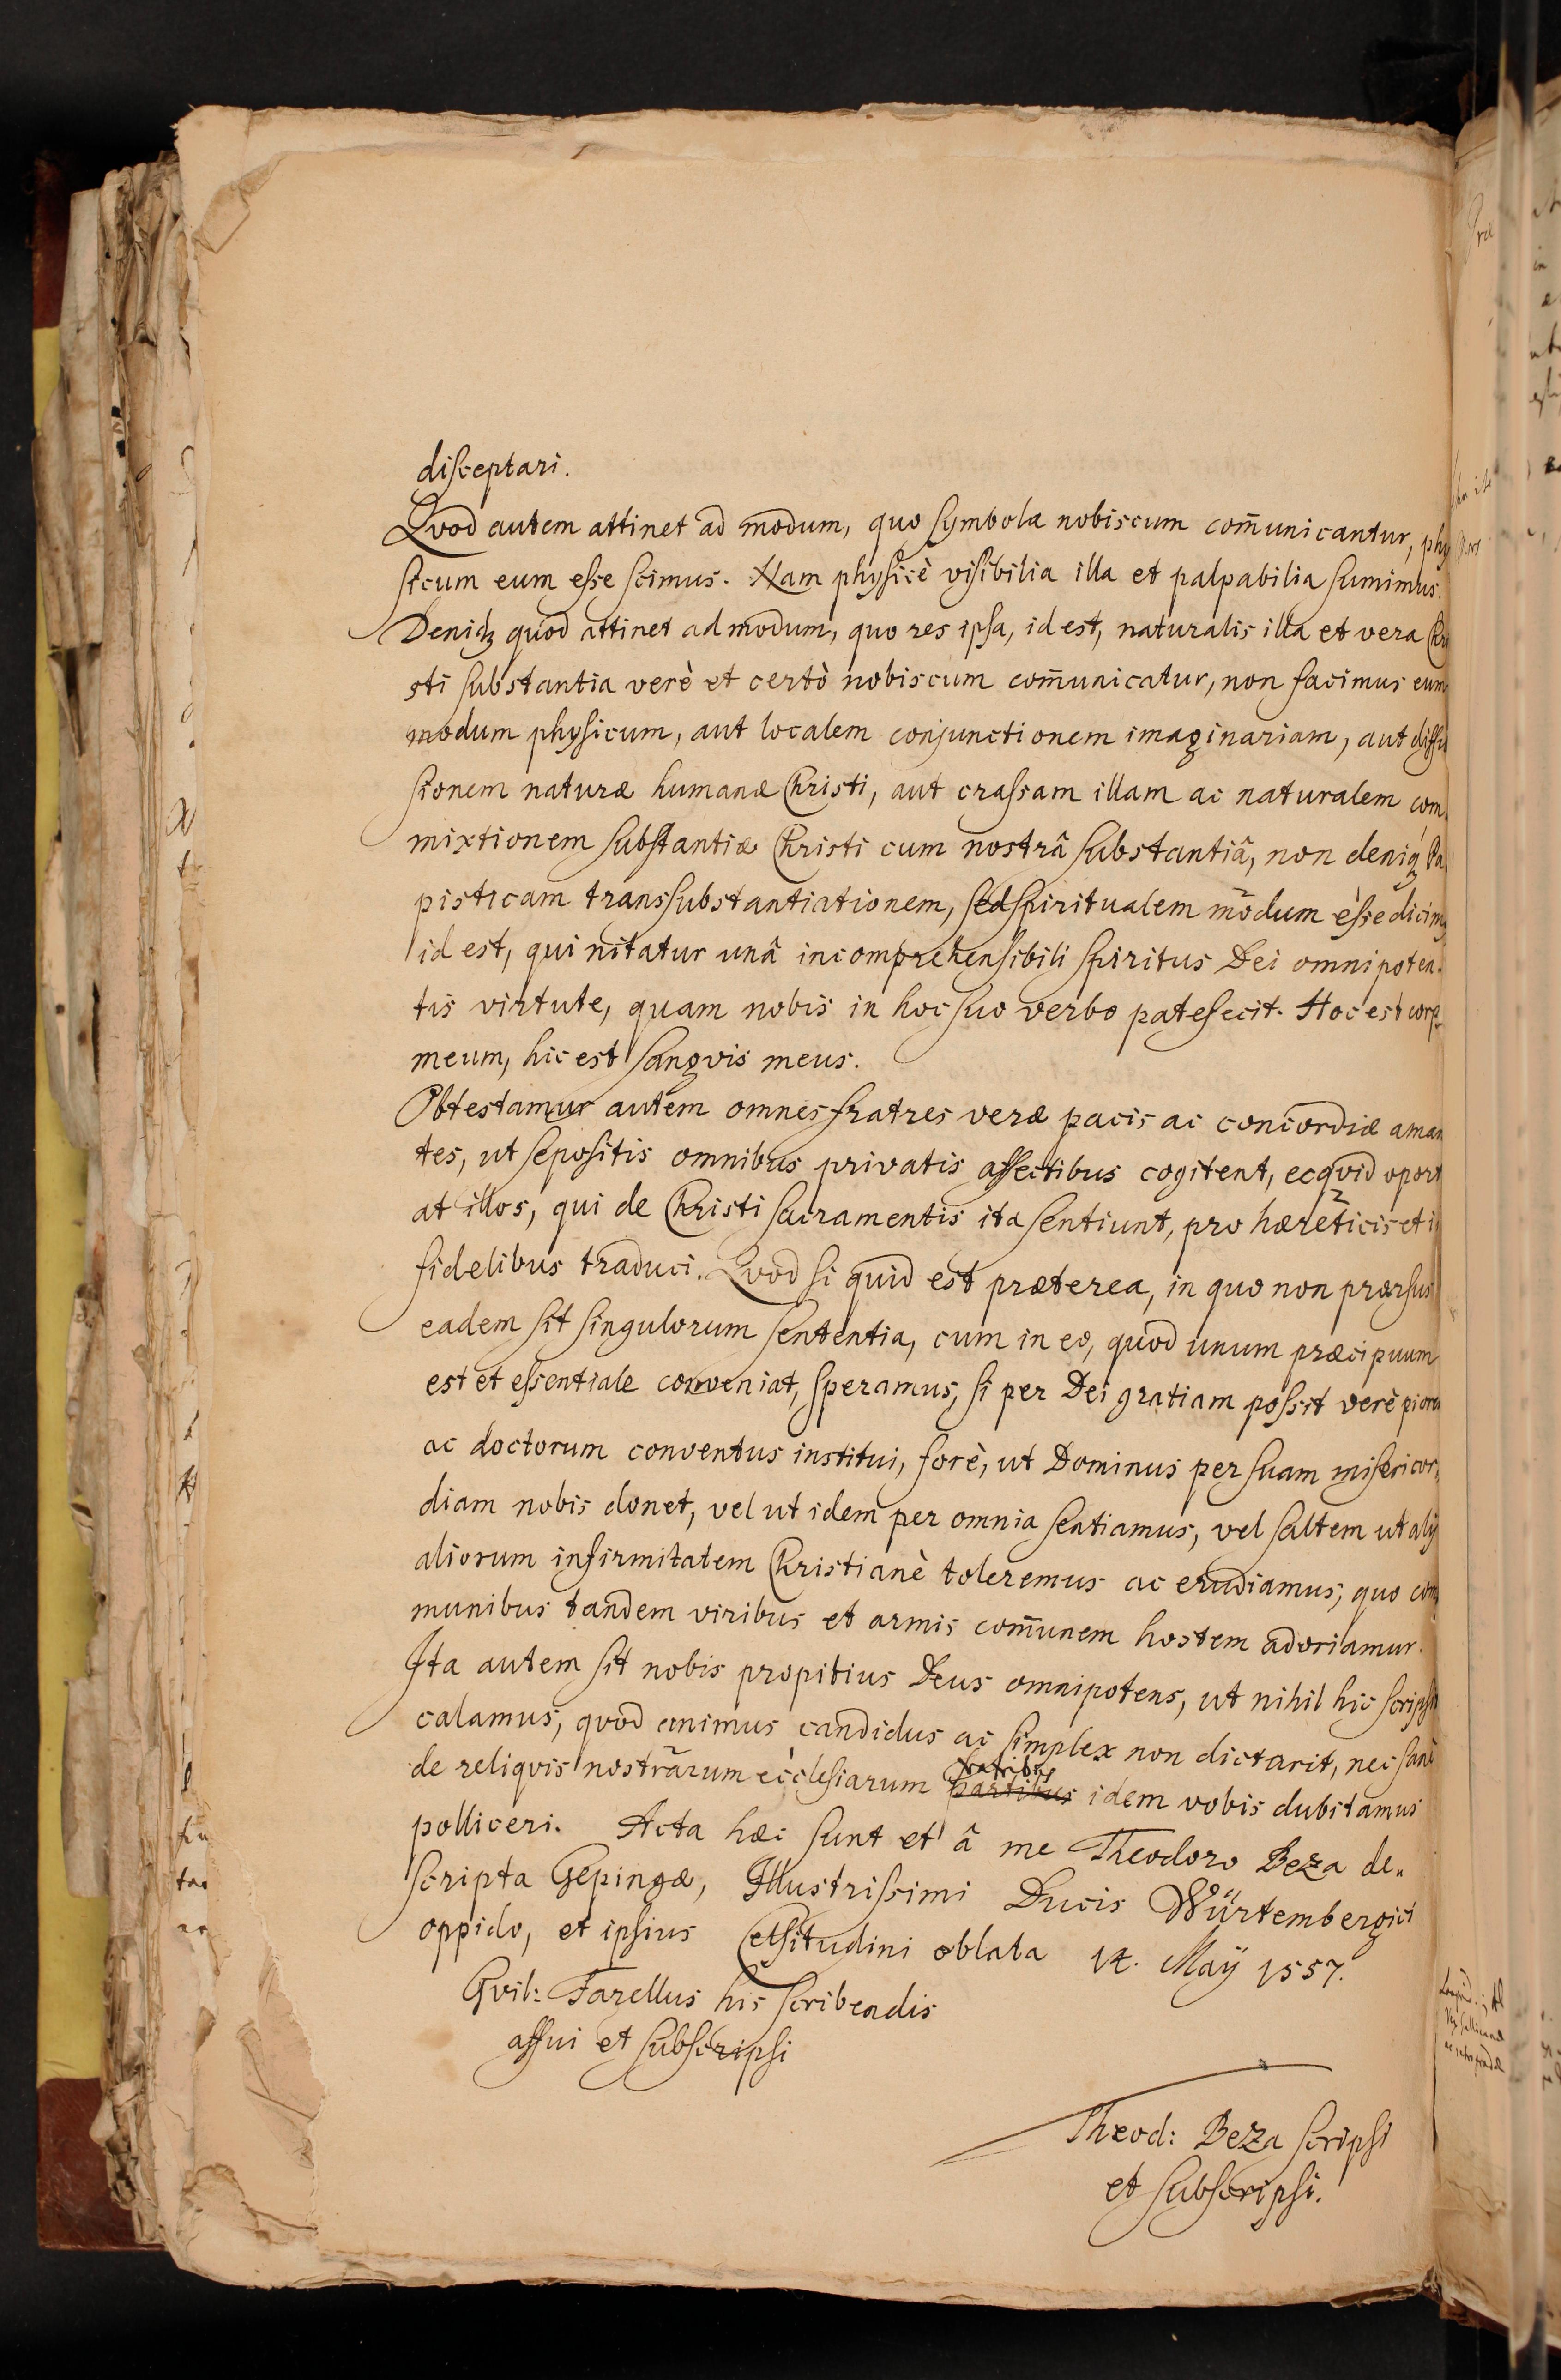 disceptari.
Qvod autem attinet ad modum, quo symbola nobiscum com̄unicantur, phy
sicum eum esse scimus. Nam physicè visibilia illa et palpabilia sumimus.
Deniq quod attinet ad modum, quo res ipsa, id est, naturalis illa et vera Chri
sti substantia verè et certò nobiscum com̄unicatur, non facimus eum
modum physicum, aut localem conjunctionem imaginariam, aut diffu
sionem naturæ humanæ Christi, aut crassam illam ac naturalem com
mixtionem substantiæ Christi cum nostrâ substantiâ, non deniq Pa
pisticam transsubstantiationem, sed spiritualem modum esse dicim9
id est, qui nitatur unâ incomprehensibili spiritus Dei omnipoten
tis virtute, quam nobis in hoc suo verbo patefecit. Hoc est corp9
meum, hic est sangvis meus.
Obtestamur autem omnes fratres veræ pacis ac concordiæ aman
tes, ut sepositis omnibus privatis affectibus cogitent, ecqvid oport
at illos, qui de Christi sacramentis ita sentiunt, pro hæreticis et i
fidelibus traduci. Qvod si quid est præterea, in quo non prorsus
eadem sit singulorum sententia, cum in eo, quod unum præcipuum
est et essentiale conveniat, speramus, si per Dei gratiam possit verè pioru
ac doctorum conventus institui, forè, ut Dominus per suam misericor,
diam nobis donet, vel ut idem per omnia sentiamus, vel saltem ut alij
aliorum infirmitatem Christianè toleremus ac erudiamus, quo com
munibus tandem viribus et armis com̄unem hostem adoriamur.
Ita autem sit nobis propitius Deus omnipotens, ut nihil hic scripsit
calamus, quod animus candidus ac simplex non dictarit, nec sanè
fratribus
de reliqvis nostrarum ecclesiarum partibus idem vobis dubitamus
polliceri. Acta hæc sunt et â me Theodoro Beza de„
scripta Gepingæ, Illustrissimi Ducis Würtembergici
oppido, et ipsius Celsitudini oblata 14. Maÿ 1557.
Gvil: Farellus his scribendis
affui et subscripsi
Theod: Beza scripsi
et subscripsi.